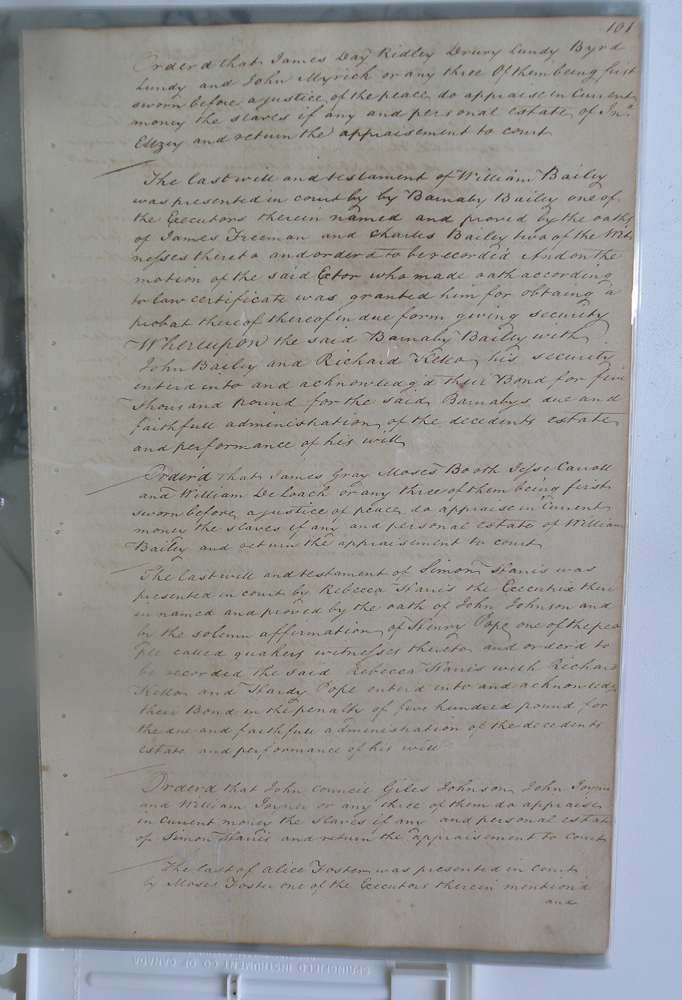 101
Orderd that James Day Ridley Drury Lundy Byrd
Lundy and John Myrick or any three Of them being first
sworn before a justice of the peace do appraise in Current
money the slaves if any and personal estate of Jno.
Ellzey and return the appraisement to court
The last will and testament of William Bailey
was presented in court by by Barnaby Bailey one of
the Executors therein named and proved by the oaths
of James Freeman and Charles Bailey two of the Wit
nesses thereto and orderd to be recorded And on the
motion of the said Extor who made oath according
to law certificate was granted him for obtaing a
probat thereof thereof in due form giving security
Whereupon the said Barnaby Bailey with
John Bailey and Richard Kello his security
enterd into and acknowledg'd their Bond for five
thousand pound for the said Barnabys due and
faithfull administration of the decedents estate
and performance of his will
Order'd that James Gray Moses Booth Jesse Carroll
and William DeLoach or any three of them being first
sworn before a justice of peace do appraise in Current
money the slaves if any and personal estate of William
Bailey and return the appraisement to court
The last will and testament of Simon Harris was
presented in court by Rebecca Harris the Executrix there
in named and proved by the oath of John Johnson and
by the solemn affirmation of Henry Pope one of the peo
ple called quakers witnesses thereto and order'd to
be recorded the said Rebecca Harris with Richard
Kello and Hardy Pope enter'd into and acknowledg
their Bond in the penalty of five hundred pound for
the due and faithfull administration of the decedents
estate and performance of his will
Orderd that John Council Giles Johnson John Joyner
and William Joyner or any three of them do appraise
in current money the slaves if any and personal estate
of Simon Harris and return the appraisement to Court
The last of Alice Foster was presented in Court
by Moses Foster one of the Executors therein mention'd
and
SPRINGFIELD INSTRUMENT CO. OF CANADA